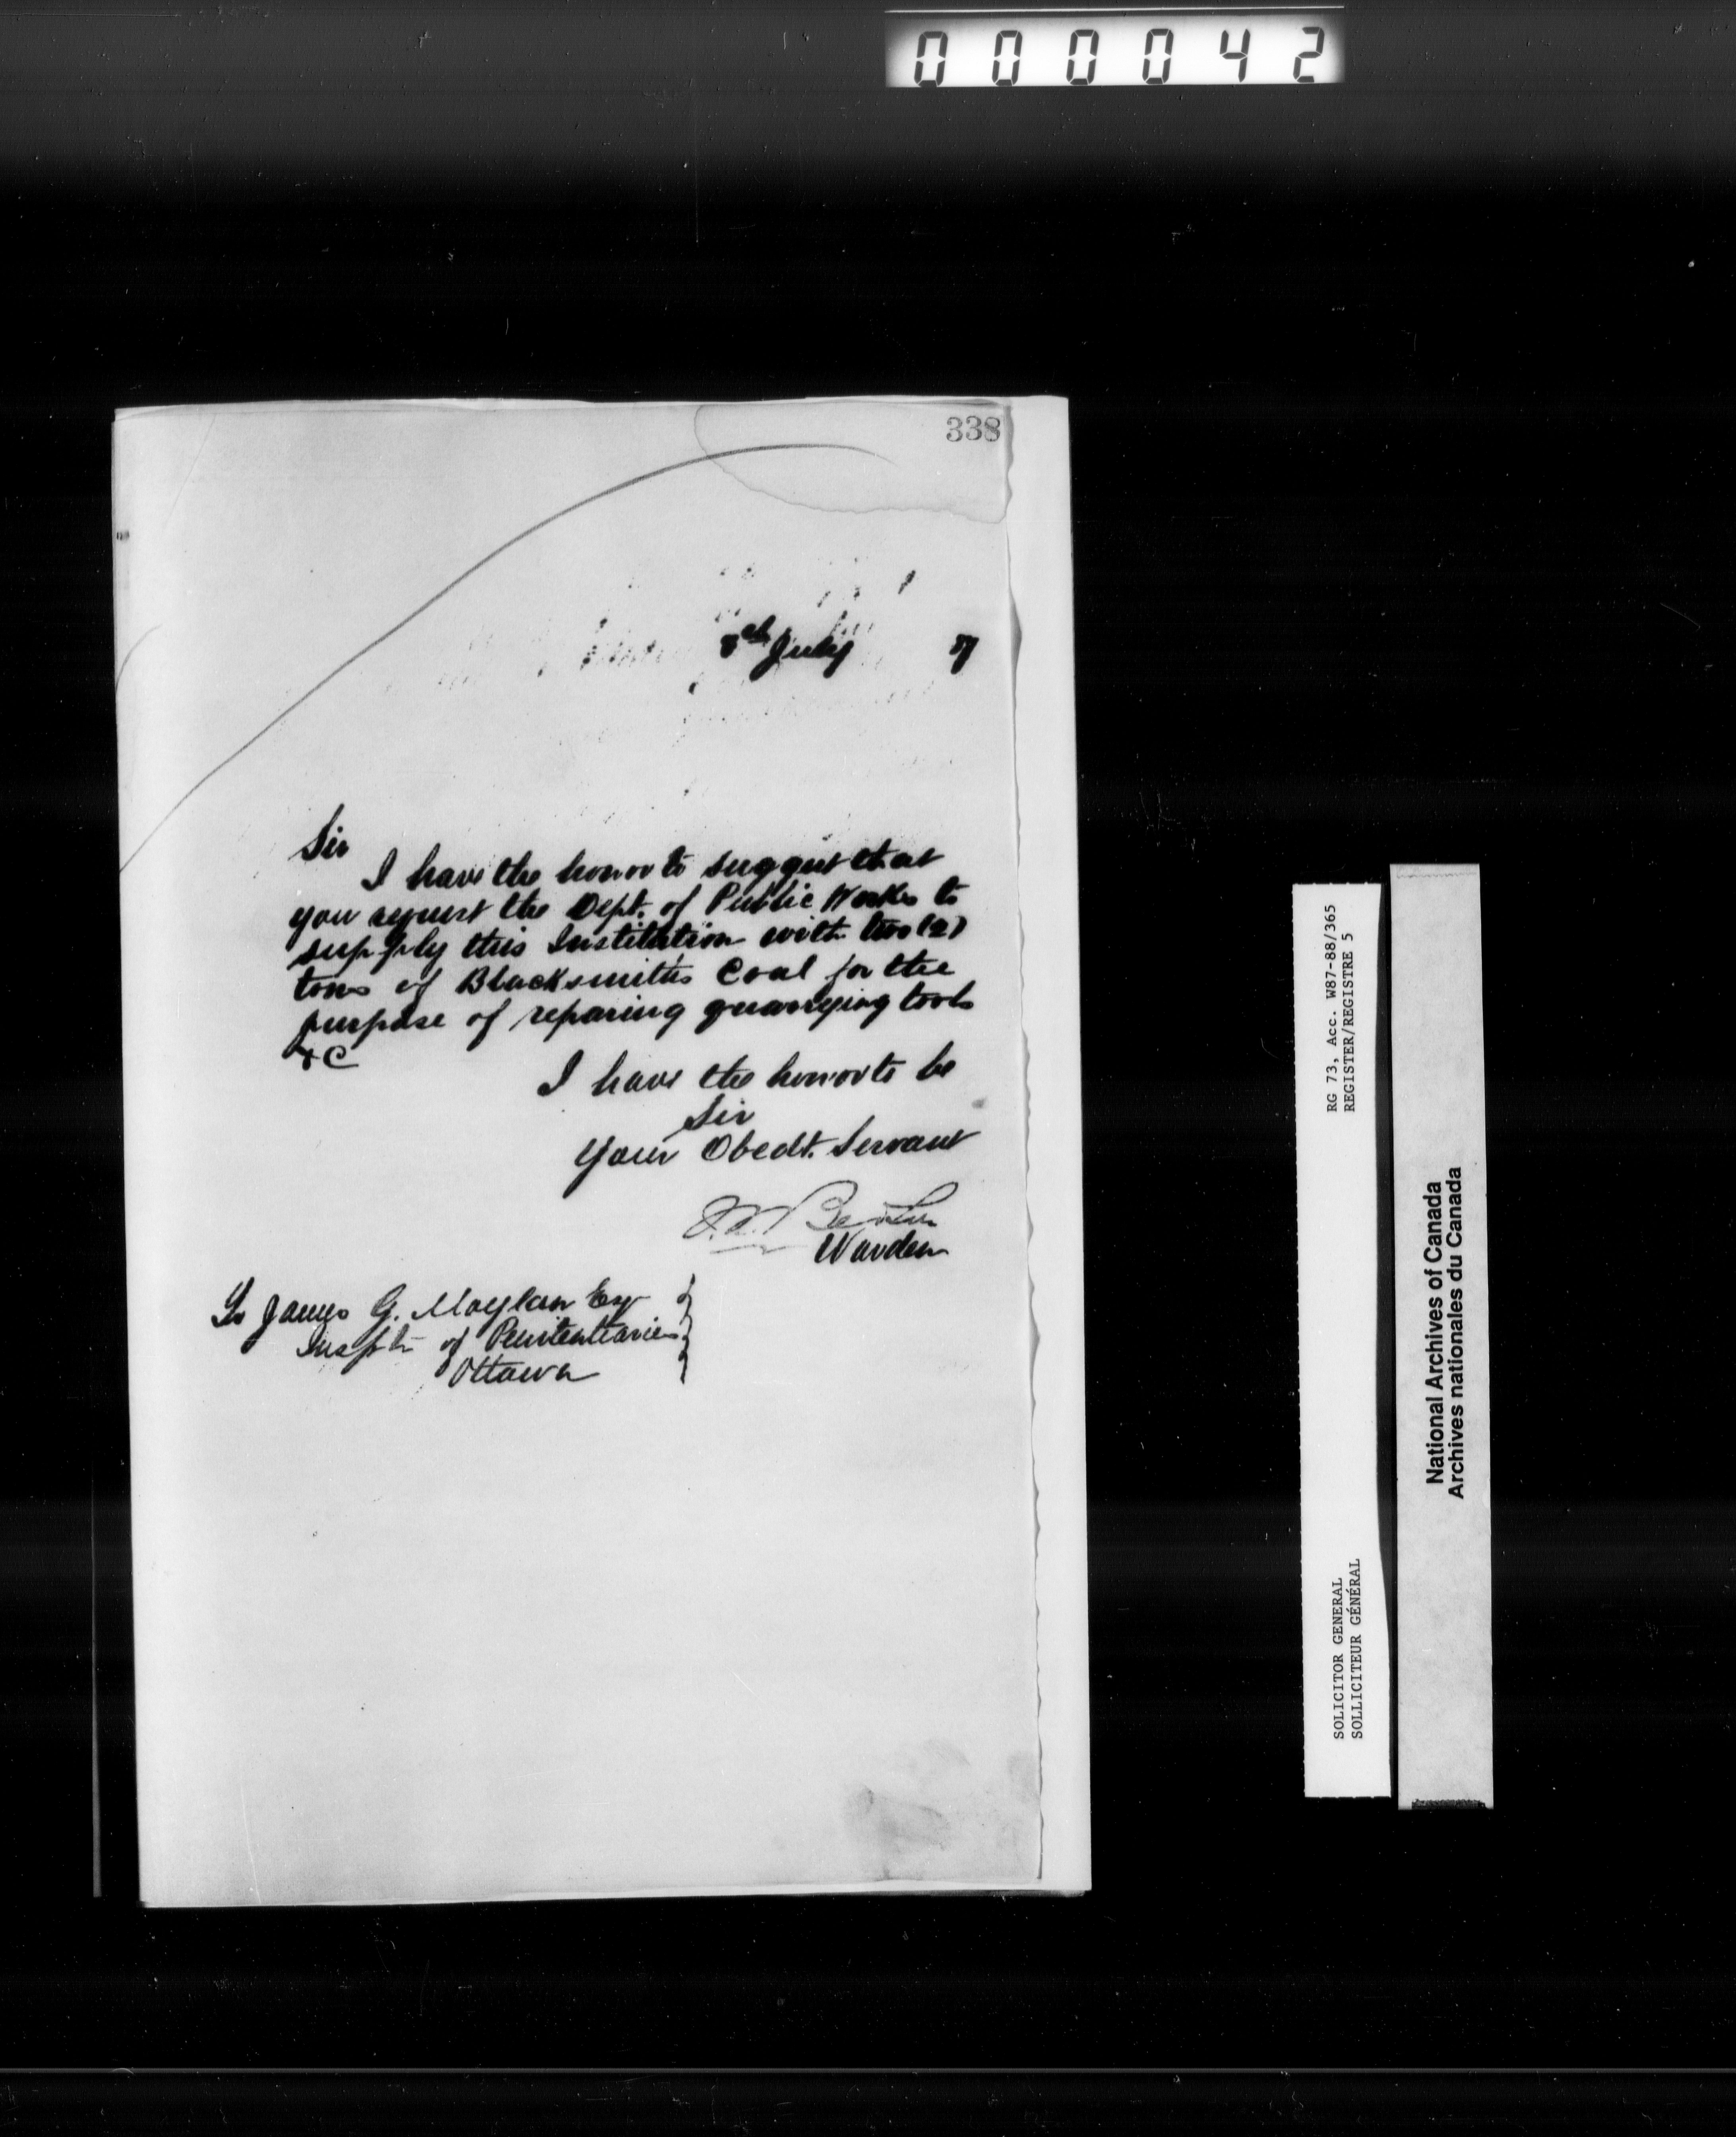 000042
338
8th July 7
Sir
I have the honor to suggest that
you request the Dept. of Public Works to
supply this Institution with two (2)
tons of Blacksmiths Coal for the
purpose of reparing quarrying tools
& C
I have the honor to be
Sir
Your Obedt. Servant
Warden
To James G. Moylan Esq
Insptr of Penitentiaries
Ottawa
RG 73, Acc. W87-88/365
REGISTER/REGISTRE 5
SOLICITOR GENERAL
SOLLICITEUR GÉNÉRAL
National Archives of Canada
Archives nationales du Canada